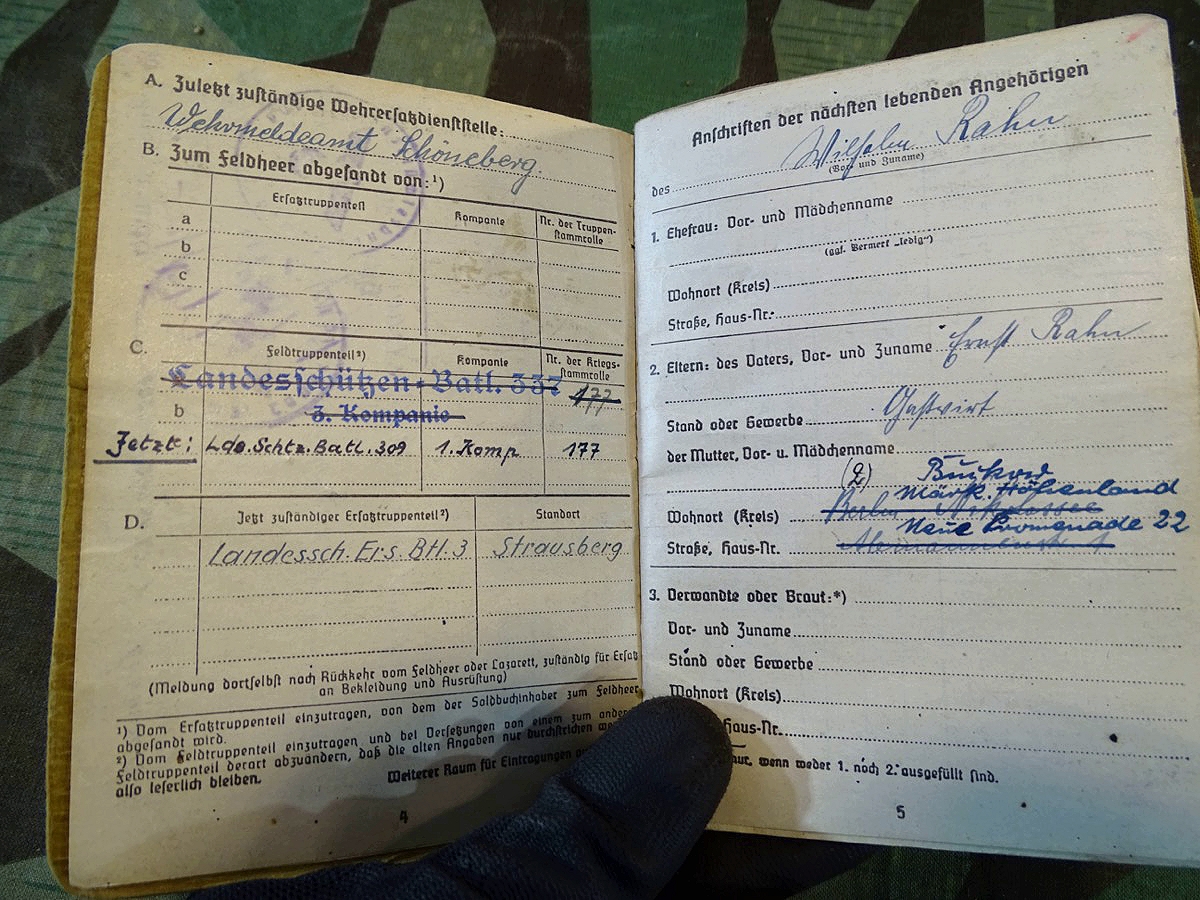 A. Zuletzt zuständige Wehrersatzdienststelle:
Wehrmeldeamt Schöneberg.
B. Zum Feldheer abgesandt von:¹)
Ersatztruppenteil Kompanie Nr. der Truppen-
stammrolle
a
b
c
C. Feldtruppenteil²) Kompanie Nr. der Kriegs-
stammrolle
Landesschützen-Batl. 337 177
3. Kompanie
b
Jetzt: Lds.Schtz.Batl. 309 1. Komp 177
D. Jetzt zuständiger Ersatztruppenteil²) Standort
Landessch. Ers. Btl. 3 Strausberg
(Meldung dortselbst nach Rückkehr vom Feldheer oder Lazarett, zuständig für Ersatz
an Bekleidung und Ausrüstung)
¹) Vom Ersatztruppenteil einzutragen, von dem der Soldbuchinhaber zum Feldheer
abgesandt wird.
²) Vom Feldtruppenteil einzutragen und bei Versetzungen von einem zum andere
Feldtruppenteil derart abzuändern, daß die alten Angaben nur durchstrichen
also leserlich bleiben.
Weiterer Raum für Eintragungen
4
Anschriften der nächsten lebenden Angehörigen
des Wilhelm Rahn
(Vor- und Zuname)
1. Ehefrau: Vor- und Mädchenname
(ggf. Vermerk „ledig“)
Wohnort (Kreis)
Straße, Haus-Nr.
2. Eltern: des Vaters, Vor- und Zuname Ernst Rahn
Stand oder Gewerbe Gastwirt
der Mutter, Vor- u. Mädchenname
(2) Buckow
Märk. Höhenland
Wohnort (Kreis) Berlin - Nikolassee
Neue Promenade 22
Straße, Haus-Nr.
3. Verwandte oder Braut:*)
Vor- und Zuname
Stand oder Gewerbe
Wohnort (Kreis)
Haus-Nr.
nur, wenn weder 1. noch 2. ausgefüllt sind.
5